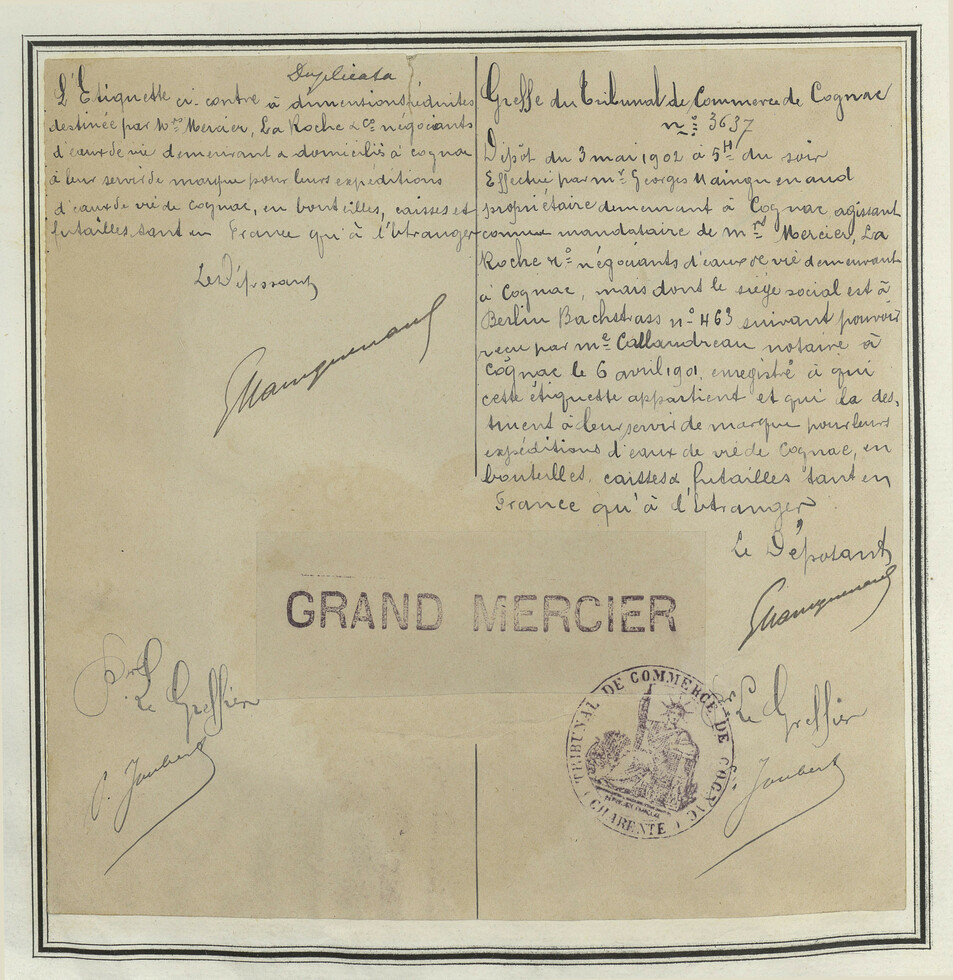 Duplicata
L'Étiquette ci-contre à dimensions réduites
destinée par Mrs Mercier, La Roche & Co négociants
d'eaux de vie demeurant & domiciliés à Cognac
à leur servir de marque pour leurs expéditions
d'eaux de vie de Cognac, en bouteilles, caisses et
futailles tant en France qu'à l'étranger
Le Déposant
Mainguenaud
Greffe du Tribunal de Commerce de Cognac
no 3637
Dépôt du 3 mai 1902 à 5H du soir
Effectué par Mr Georges Mainguenaud
propriétaire demeurant à Cognac agissant
comme mandataire de Mrs Mercier, La
Roche & Co négociants d'eaux de vie demeurant
à Cognac, mais dont le siège social est à
Berlin Bachstrass no 463 suivant pouvoir
reçu par Me Callandreau notaire à
Cognac le 6 avril 1901, enregistré à qui
cette étiquette appartient et qui la des-
tinent à leur servir de marque pour leurs
expéditions d'eaux de vie de Cognac, en
bouteilles, caisses & futailles tant en
France qu'à l'étranger
Le Déposant
Mainguenaud
GRAND MERCIER
Pr Le Greffier
P. Joubert
TRIBUNAL DE COMMERCE DE COGNAC
(CHARENTE)
Le Greffier
Joubert